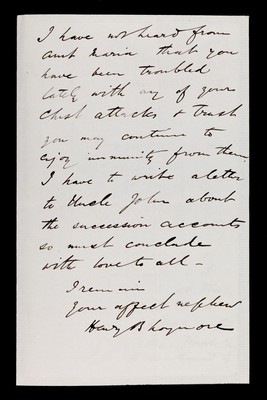 I have not heard from
aunt Maria that you
have been troubled
lately with any of your
chest attacks & trust
you may continue to
enjoy immunity from them
I have to write a letter
to Uncle John about
the succession accounts
so must conclude
with love to all –
I remain
your affect nephew
Henry B